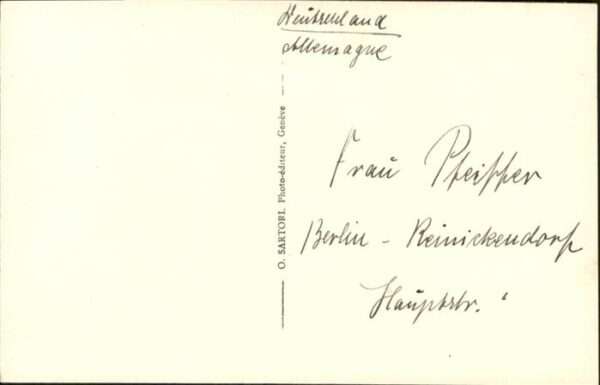 Deutschland
Allemagne
O. SARTORI, Photo-éditeur, Genève
Frau Pfeiffer
Berlin - Reinickendorf
Hauptstr.